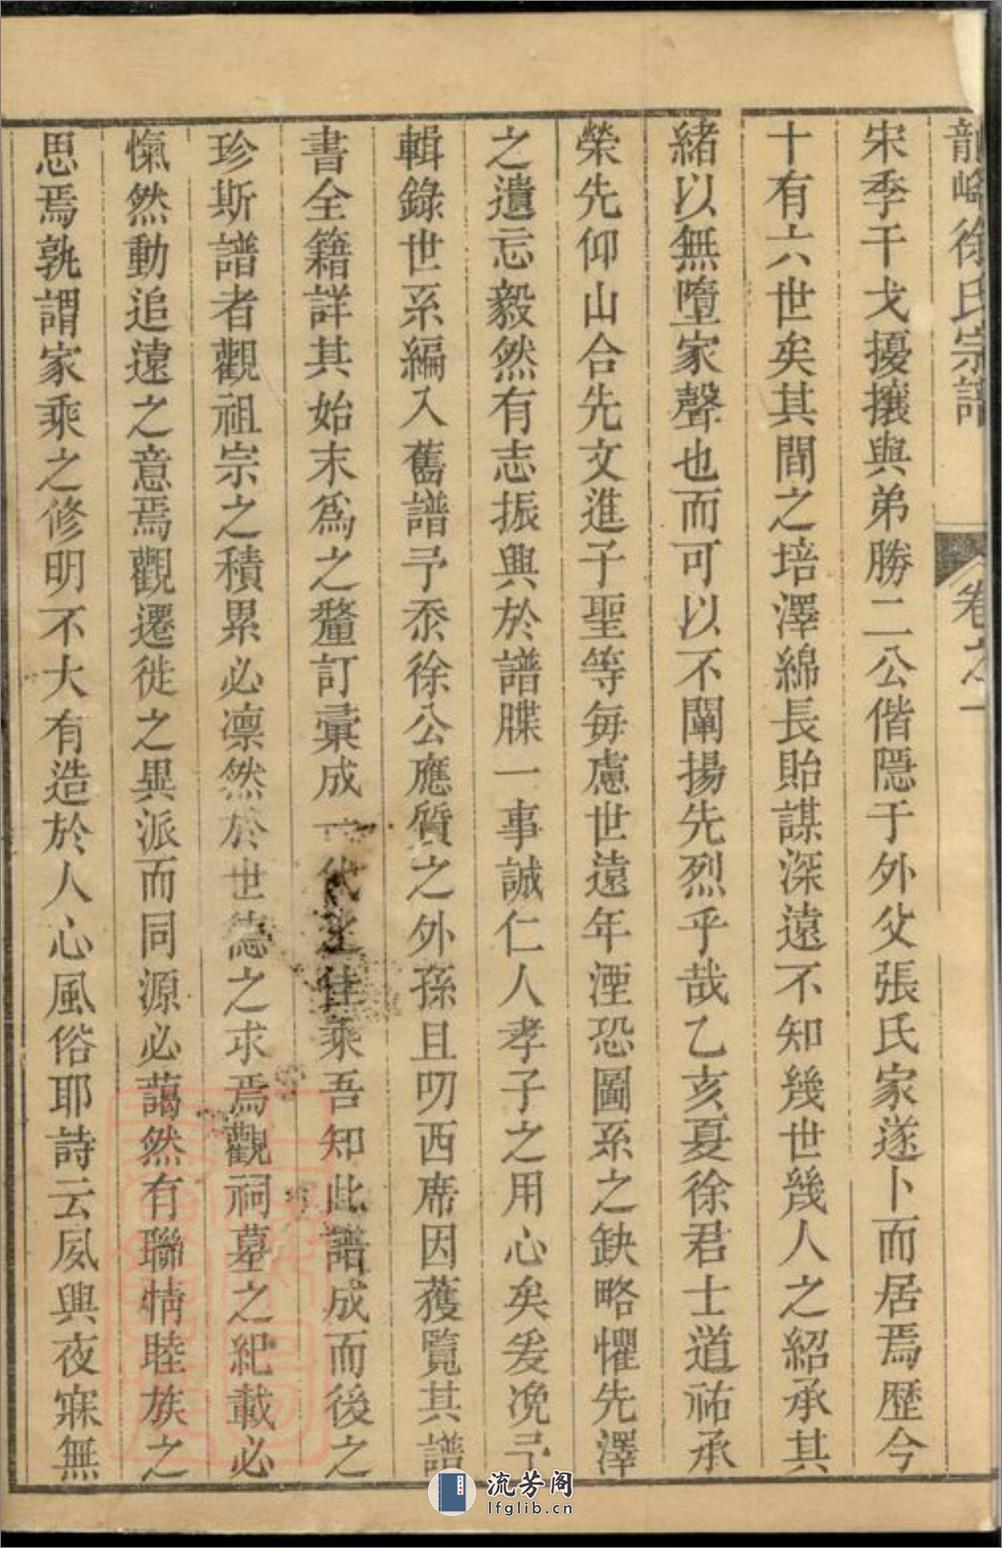 龍峰徐氏宗譜 卷之一
宋季干戈擾攘與弟勝二公偕隠于外父張氏家遂卜而居焉歷今
十有六世矣其間之培澤綿長貽謀深遠不知幾世幾人之紹承其
緒以無墮家聲也而可以不闡揚先烈乎哉乙亥夏徐君士道祐承
榮先仰山合先文進子聖等每慮世遠年湮恐圖系之缺略懼先澤
之遺忘毅然有志振興於譜牒一事誠仁人孝子之用心矣爰浼予
輯錄世系編入舊譜予忝徐公應質之外孫且叨西席因獲覽其譜
書全籍詳其始末爲之釐訂彙成一代之佳乘吾知此譜成而後之
珍斯譜者觀祖宗之積累必凛然於世德之求焉觀祠墓之紀載必
愾然動追遠之意焉觀遷徙之異派而同源必藹然有聯情睦族之
思焉孰謂家乘之修明不大有造於人心風俗耶詩云夙興夜寐無
流芳阁
lfglib.cn